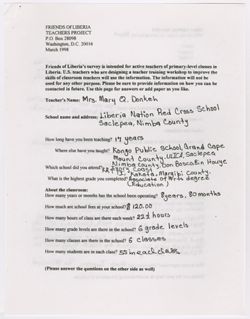 FRIENDS OF LIBERIA
TEACHERS PROJECT
P.O. Box 28098
Washington, D.C. 20014
March 1998
Friends of Liberia's survey is intended for active teachers of primary-level classes in
Liberia. U.S. teachers who are designing a teacher training workshop to improve the
skills of classroom teachers will use the information. The information will not be
used for any other purpose. Please be sure to provide information on how you can be
contacted in future. Use this page for answers or add paper as you like.
Teacher's Name: Mrs. Mary Q. Donkeh
School name and address: Liberia Nation Red Cross School
Saclepea, Nimba County
How long have you been teaching? 17 years
Where else have you taught? Kongo Public School, Grand Cape
Mount County, Saclepea
Nimba County, Don Bosco
Which school did you attend?
Kakata, Margibi County.
What is the highest grade you completed? Associate of Arts degree
(Education)
About the classroom:
How many years or months has the school been operating? 8 years, 80 months
How much are school fees at your school? $120.00
How many hours of class are there each week? 22½ hours
How many grade levels are there in the school? 6 grade levels
How many classes are there in the school? 6 classes
How many students are in each class? 55 in each class
(Please answer the questions on the other side as well)